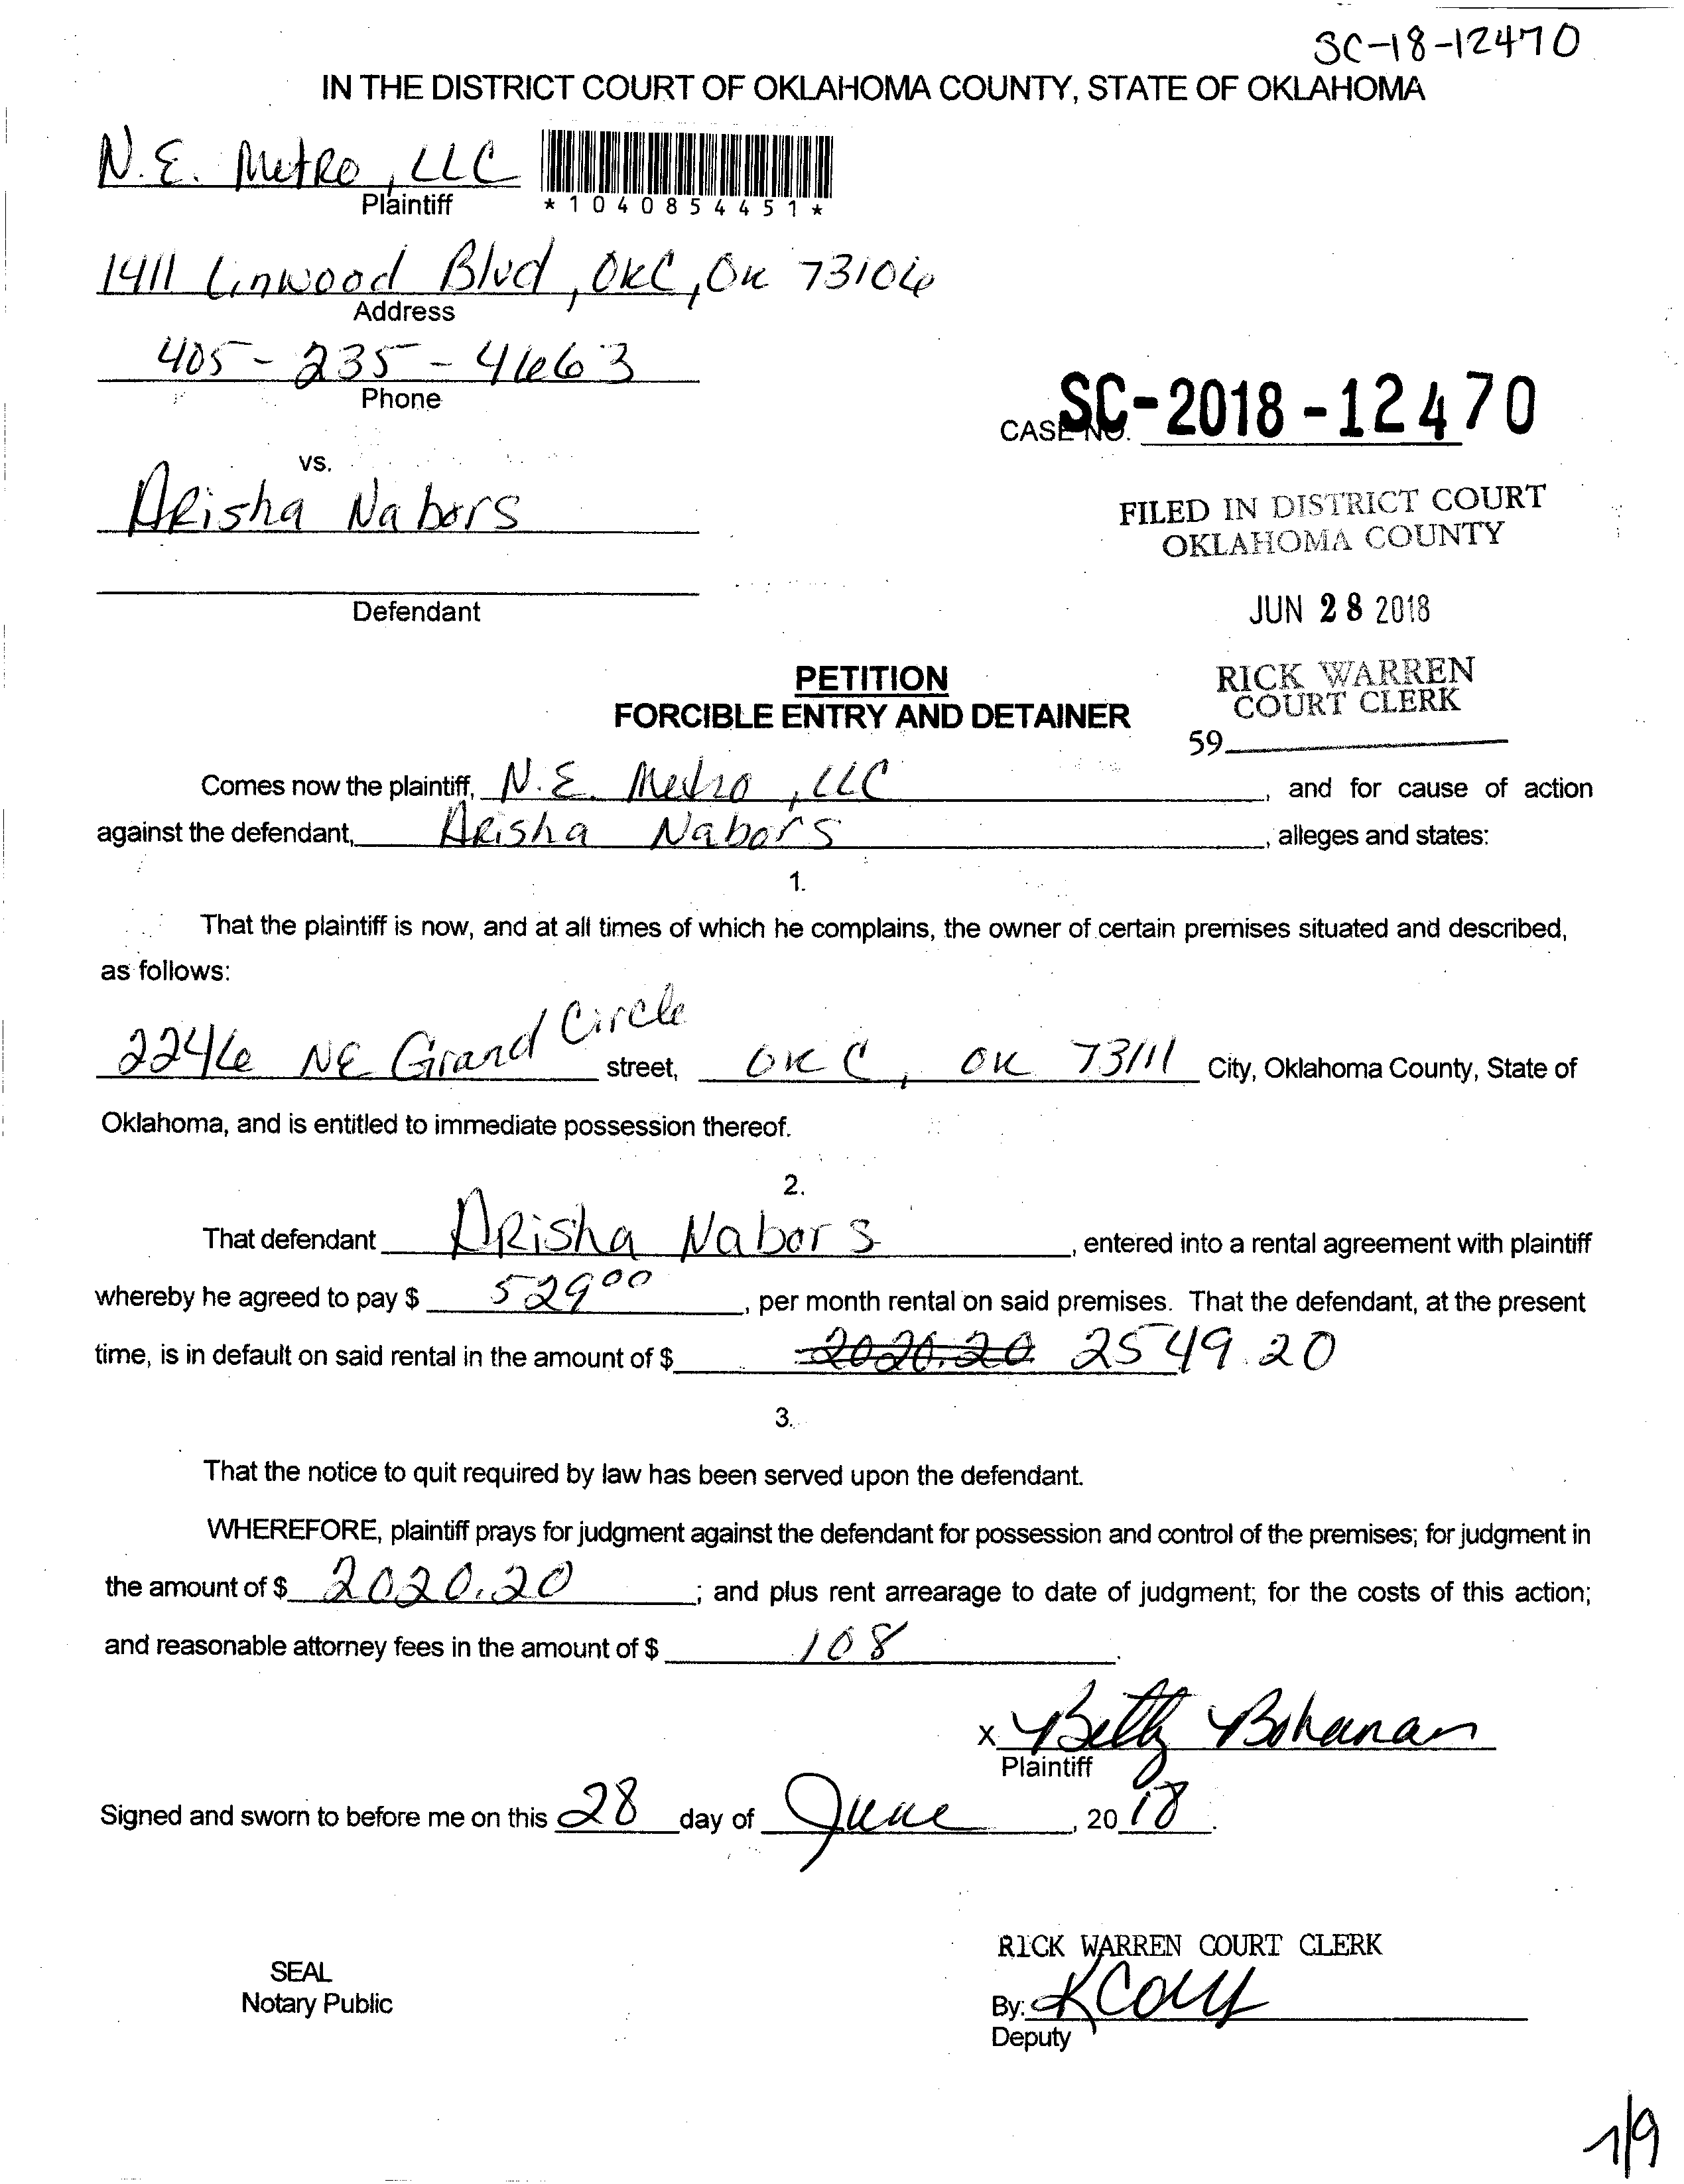 SC-18-12470
IN THE DISTRICT COURT OF OKLAHOMA COUNTY, STATE OF OKLAHOMA
N.E. Metro, LLC
Plaintiff
*1040854451*
1411 Linwood Blvd, OKC, OK 73106
Address
405-235-4663
Phone
CASE NO. SC-2018-12470
vs.
Arisha Nabors
FILED IN DISTRICT COURT
OKLAHOMA COUNTY
Defendant
JUN 28 2018
PETITION
FORCIBLE ENTRY AND DETAINER
RICK WARREN
COURT CLERK
59
Comes now the plaintiff, N.E. Metro, LLC, and for cause of action
against the defendant, Arisha Nabors, alleges and states:
1.
That the plaintiff is now, and at all times of which he complains, the owner of certain premises situated and described,
as follows:
2246 NE Grand Circle street, OKC, OK 73111 City, Oklahoma County, State of
Oklahoma, and is entitled to immediate possession thereof.
2.
That defendant Arisha Nabors, entered into a rental agreement with plaintiff
whereby he agreed to pay $ 529 00, per month rental on said premises. That the defendant, at the present
time, is in default on said rental in the amount of $ 2020.20 2549.20
3.
That the notice to quit required by law has been served upon the defendant.
WHEREFORE, plaintiff prays for judgment against the defendant for possession and control of the premises; for judgment in
the amount of $ 2020.20; and plus rent arrearage to date of judgment; for the costs of this action;
and reasonable attorney fees in the amount of $ 108.
x Betty Bohanan
Plaintiff
Signed and sworn to before me on this 28 day of June, 2018.
RICK WARREN COURT CLERK
SEAL
Notary Public
By:
Deputy
1/9